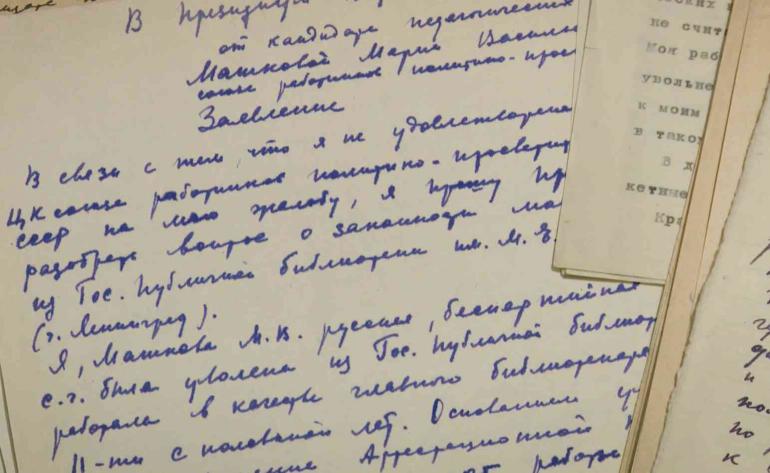 В Президиум
от кандидата педагогических
Машковой Марии Василь
союза работников политико-прос
Заявление
В связи с тем, что я не удовлетворена
ЦК союза работников политико-просвети
СССР на мою жалобу, я прошу Пр
разобрать вопрос о законности мо
из Гос. Публичной библиотеки им. М. Е.
(г. Ленинград).
Я, Машкова М. В. русская, беспартийная
с.г. была уволена из Гос. Публичной библио
работала в качестве главного библиотекаря
11-ти с половиной лет. Основанием
Аттестационной
работы
не счит
Моя раб
увольне
к моим
в тако
В д
кетине
Кра